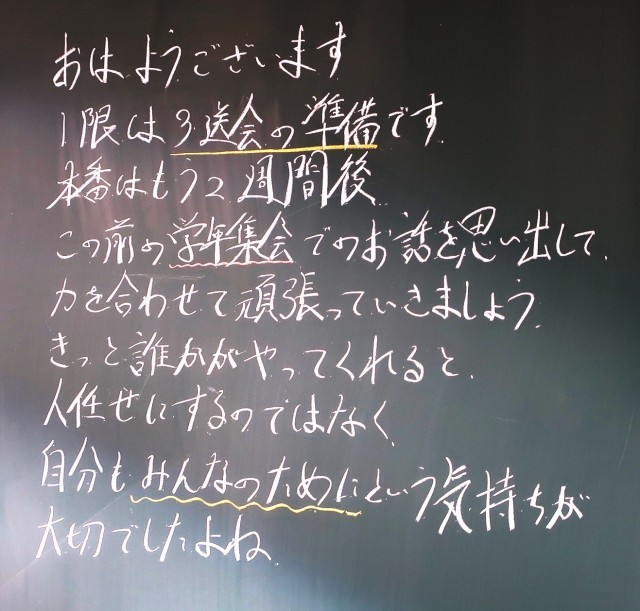 おはようございます
1限は3送会の準備です
本番はもう2週間後
この前の学年集会でのお話を思い出して、
力を合わせて頑張っていきましょう。
きっと誰かがやってくれると、
人任せにするのではなく、
自分もみんなのためにという気持ちが
大切でしたよね。